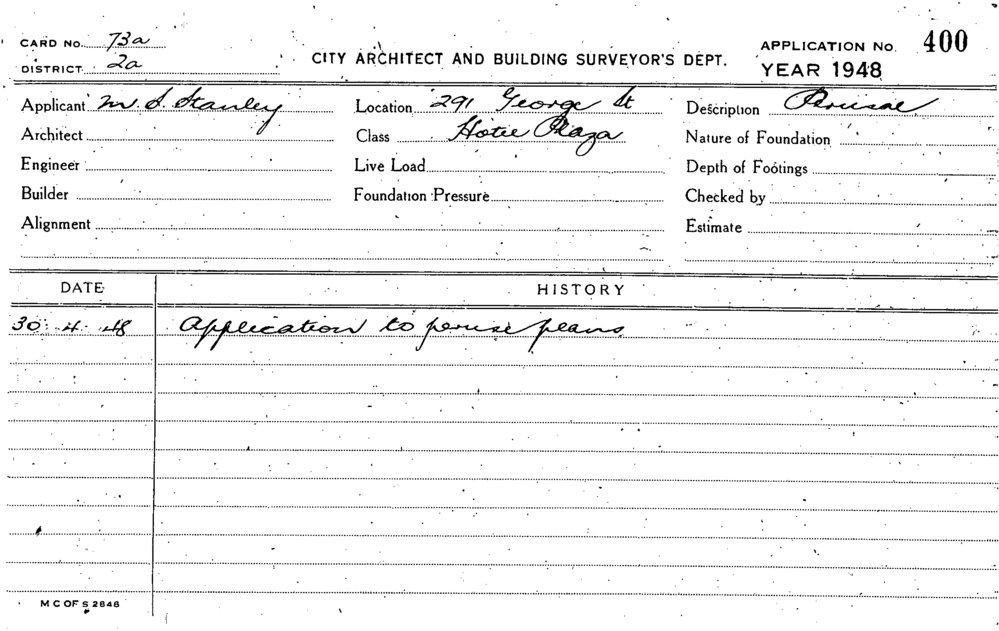 CARD No. 73a
DISTRICT 2a
CITY ARCHITECT AND BUILDING SURVEYOR'S DEPT.
APPLICATION No. 400
YEAR 1948
Applicant M S. Stanley Location 291 George St Description Perusal
Architect Class Hotel Plaza Nature of Foundation
Engineer Live Load Depth of Footings
Builder Foundation Pressure Checked by
Alignment Estimate
DATE HISTORY
30. 4. 48 Application to peruse plans.
M C OF S 2846